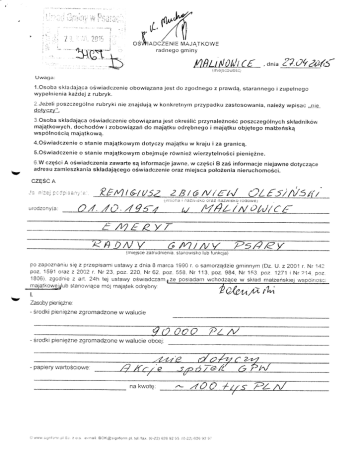 Urząd Gminy w Psarach
2015
3467
OŚWIADCZENIE MAJĄTKOWE
radnego gminy
MALINOWICE, dnia 27.04.2015
(miejscowość)
Uwaga:
1.Osoba składająca oświadczenie obowiązana jest do zgodnego z prawdą, starannego i zupełnego
wypełnienia każdej z rubryk.
2.Jeżeli poszczególne rubryki nie znajdują w konkretnym przypadku zastosowania, należy wpisać "nie
dotyczy".
3.Osoba składająca oświadczenie obowiązana jest określić przynależność poszczególnych składników
majątkowych, dochodów i zobowiązań do majątku odrębnego i majątku objętego małżeńską
wspólnością majątkową.
4.Oświadczenie o stanie majątkowym dotyczy majątku w kraju i za granicą.
5.Oświadczenie o stanie majątkowym obejmuje również wierzytelności pieniężne.
6.W części A oświadczenia zawarte są informacje jawne, w części B zaś informacje niejawne dotyczące
adresu zamieszkania składającego oświadczenie oraz miejsca położenia nieruchomości.
CZĘŚĆ A
Ja, niżej podpisany(a), REMIGIUSZ ZBIGNIEW OLESIŃSKI
(imiona i nazwisko oraz nazwisko rodowe)
urodzony(a) 01.10.1951 w MALINOWICE
EMERYT
RADNY GMINY PSARY
(miejsce zatrudnienia, stanowisko lub funkcja)
po zapoznaniu się z przepisami ustawy z dnia 8 marca 1990 r. o samorządzie gminnym (Dz. U. z 2001 r. Nr 142,
poz. 1591 oraz z 2002 r. Nr 23, poz. 220, Nr 62, poz. 558, Nr 113, poz. 984, Nr 153, poz. 1271 i Nr 214, poz.
1806), zgodnie z art. 24h tej ustawy oświadczam, że posiadam wchodzące w skład małżeńskiej wspólności
majątkowej lub stanowiące mój majątek odrębny:
I.
Zasoby pieniężne:
- środki pieniężne zgromadzone w walucie
90.000 PLN
- środki pieniężne zgromadzone w walucie obcej:
nie dotyczy
- papiery wartościowe: Akcje spółek GPW
na kwotę: ~ 100 tys PLN